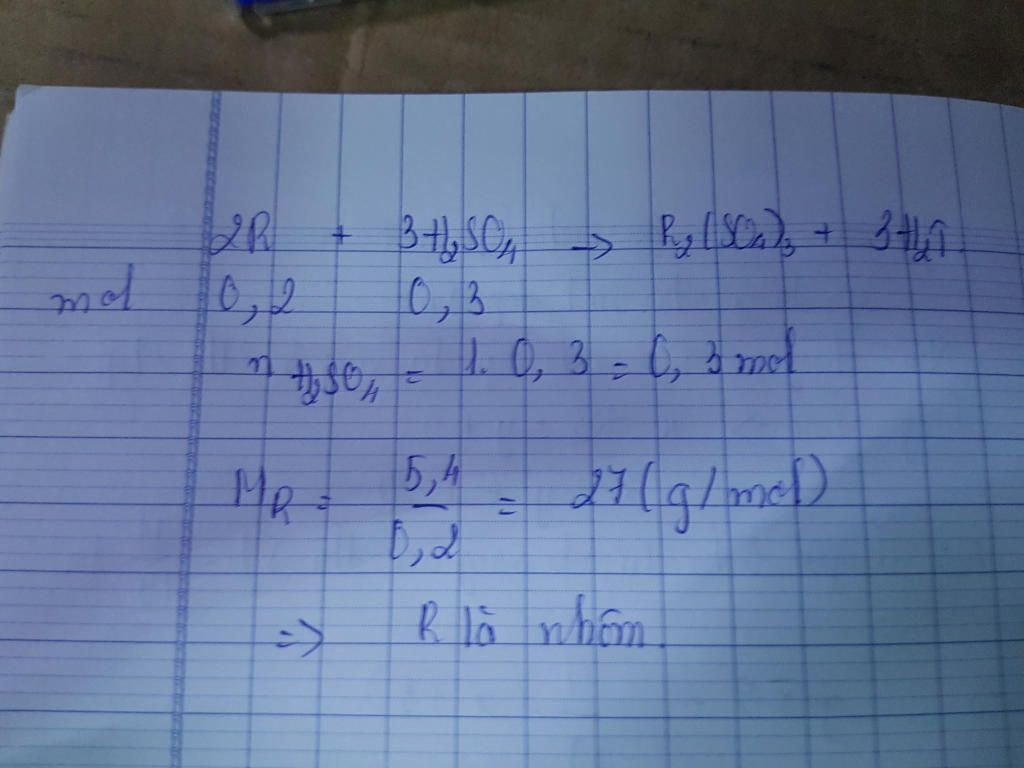 2R + 3H₂SO₄ → R₂(SO₄)₃ + 3H₂↑
mol 0,2 0,3
n H₂SO₄ = 1. 0,3 = 0,3 mol
M_R = 5,4/0,2 = 27 (g/mol)
=> R là nhôm.